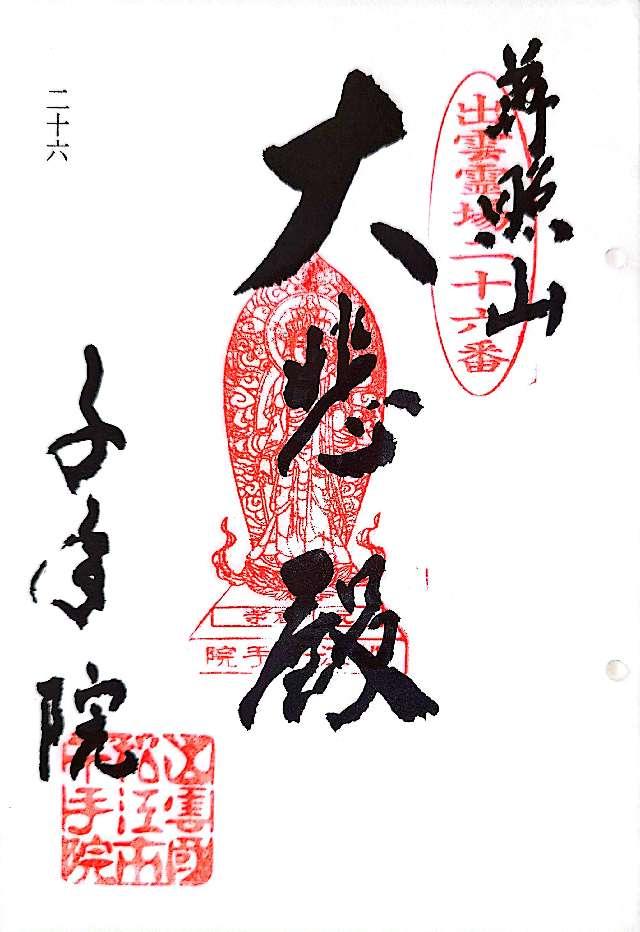 尊照山
出雲霊場二十六番
大悲殿
千手院
出雲國
松江市
千手院
二十六